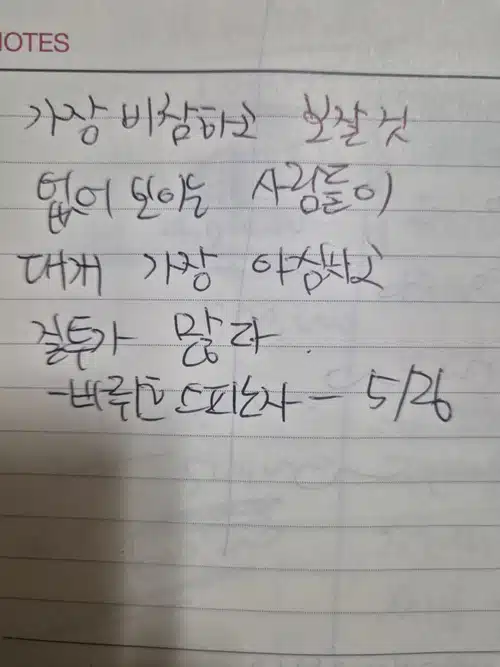 NOTES
가장 비참하고 보잘 것
없어 보이는 사람들이
대개 가장 야심차고
질투가 많다.
-베루흐 스피노자- 5/26